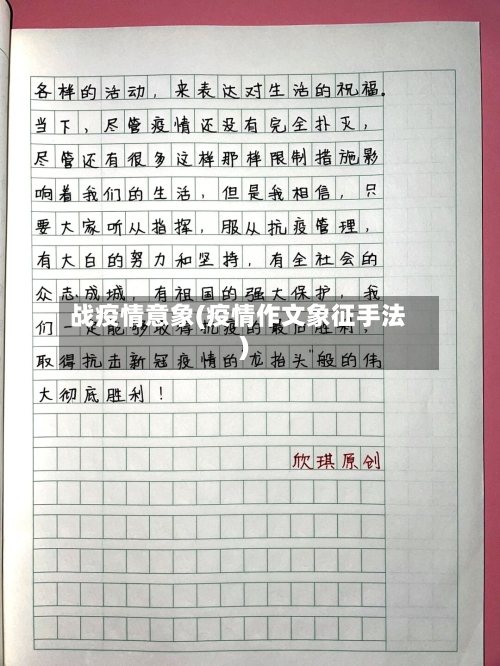 各样的活动，来表达对生活的祝福。
当下，尽管疫情还没有完全扑灭，
尽管还有很多这样那样限制措施影
响着我们的生活，但是我相信，只
要大家听从指挥，服从抗疫管理，
有大白的努力和坚持，有全社会的
众志成城，有祖国的强大保护，我
们一定能够取得抗疫的最后胜利，
战疫情意象(疫情作文象征手法
)
取得抗击新冠疫情的"龙抬头"般的伟
大彻底胜利！
欣琪原创